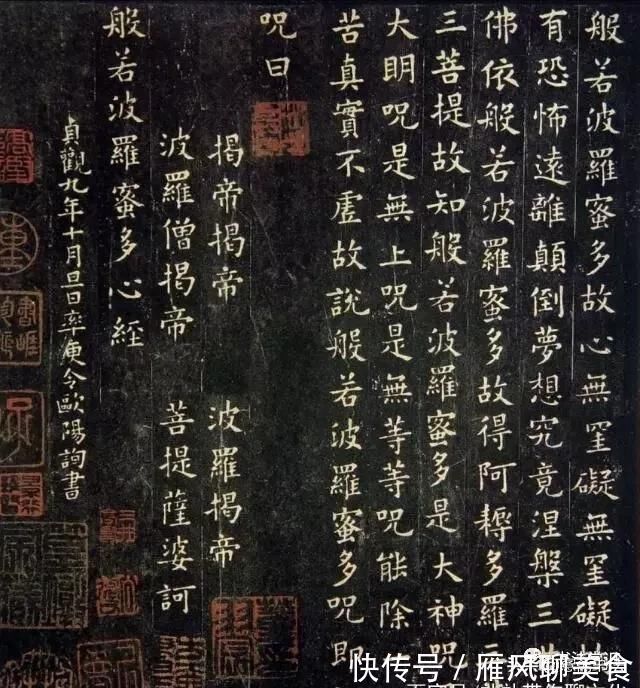 般若波羅蜜多故心無罣礙無罣礙
有恐怖遠離顛倒夢想究竟涅槃三
佛依般若波羅蜜多故得阿耨多羅三
三菩提故知般若波羅蜜多是大神咒
大明咒是無上咒是無等等咒能除一
苦真實不虛故說般若波羅蜜多咒即
咒曰
揭帝揭帝 波羅揭帝
波羅僧揭帝 菩提薩婆訶
般若波羅蜜多心經
貞觀九年十月旦日率更令歐陽詢書
快传号/雁风聊美食